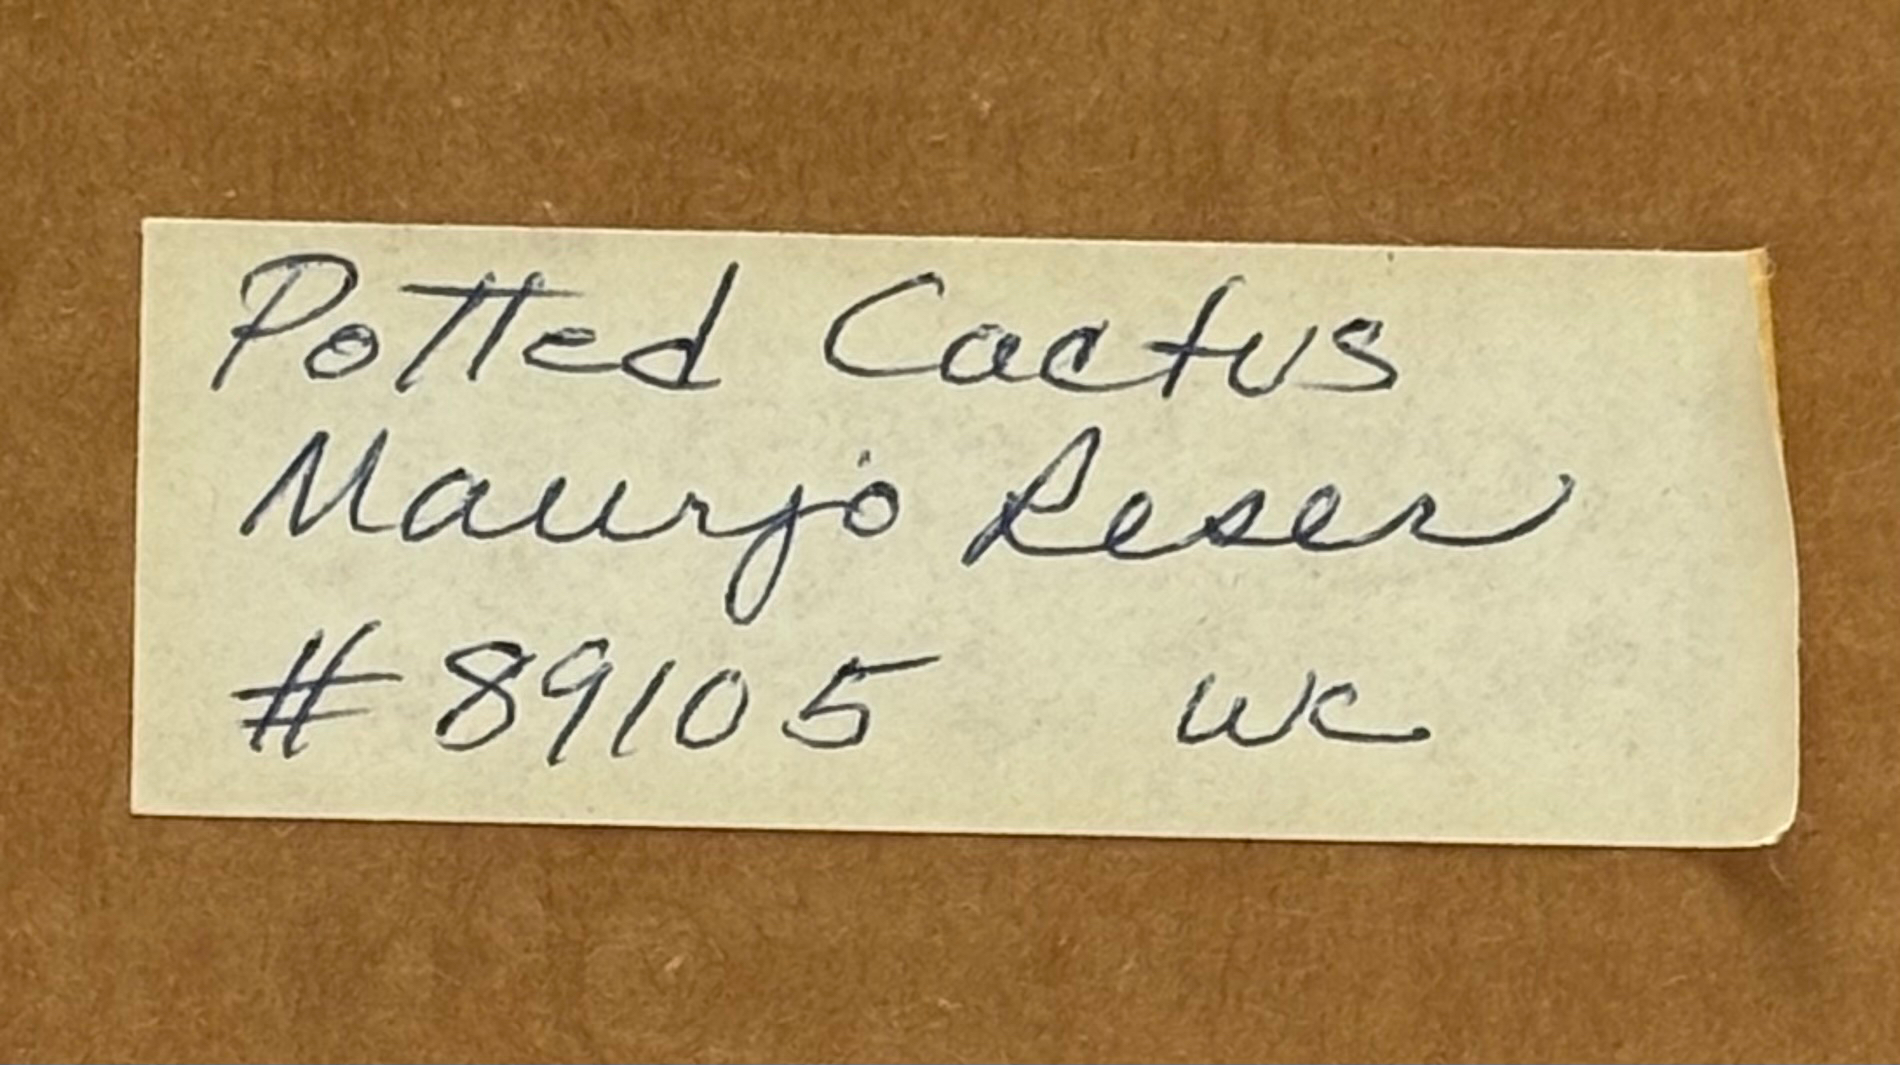 Potted Cactus
Maurjo Reser
#89105 WC